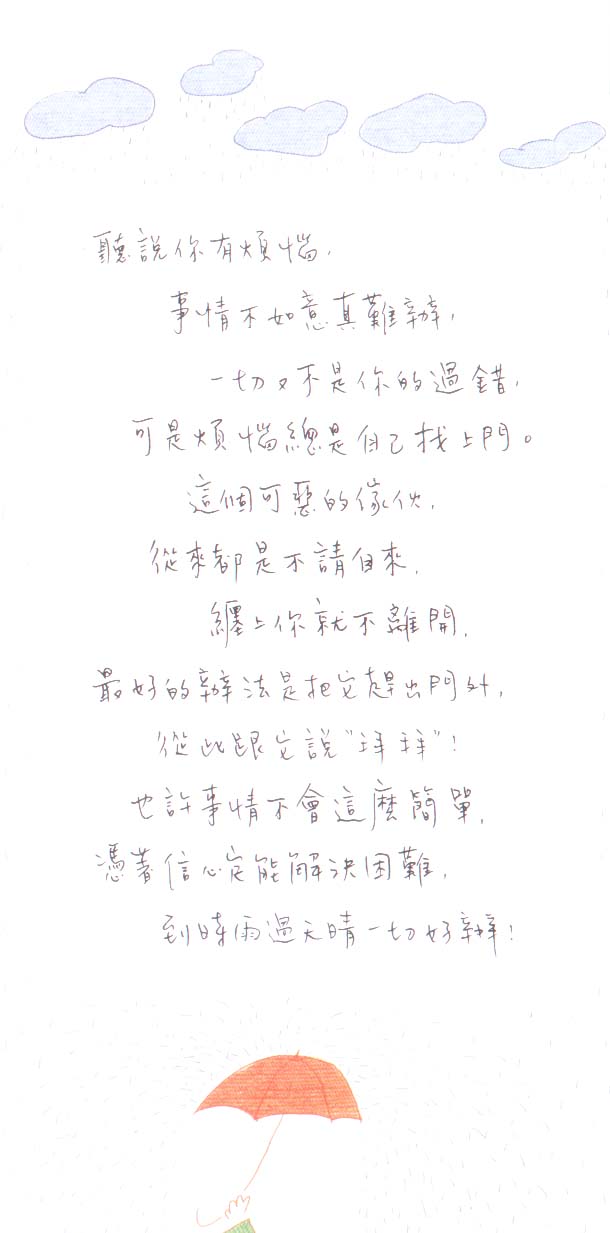 聽說你有煩惱,
事情不如意真難辦,
一切又不是你的過錯,
可是煩惱總是自己找上門。
這個可惡的傢伙,
從來都是不請自來,
纏上你就不離開,
最好的辦法是把它趕出門外,
從此跟它說“拜拜”!
也許事情不會這麼簡單,
憑著信心定能解決困難,
到時雨過天晴一切好辦!